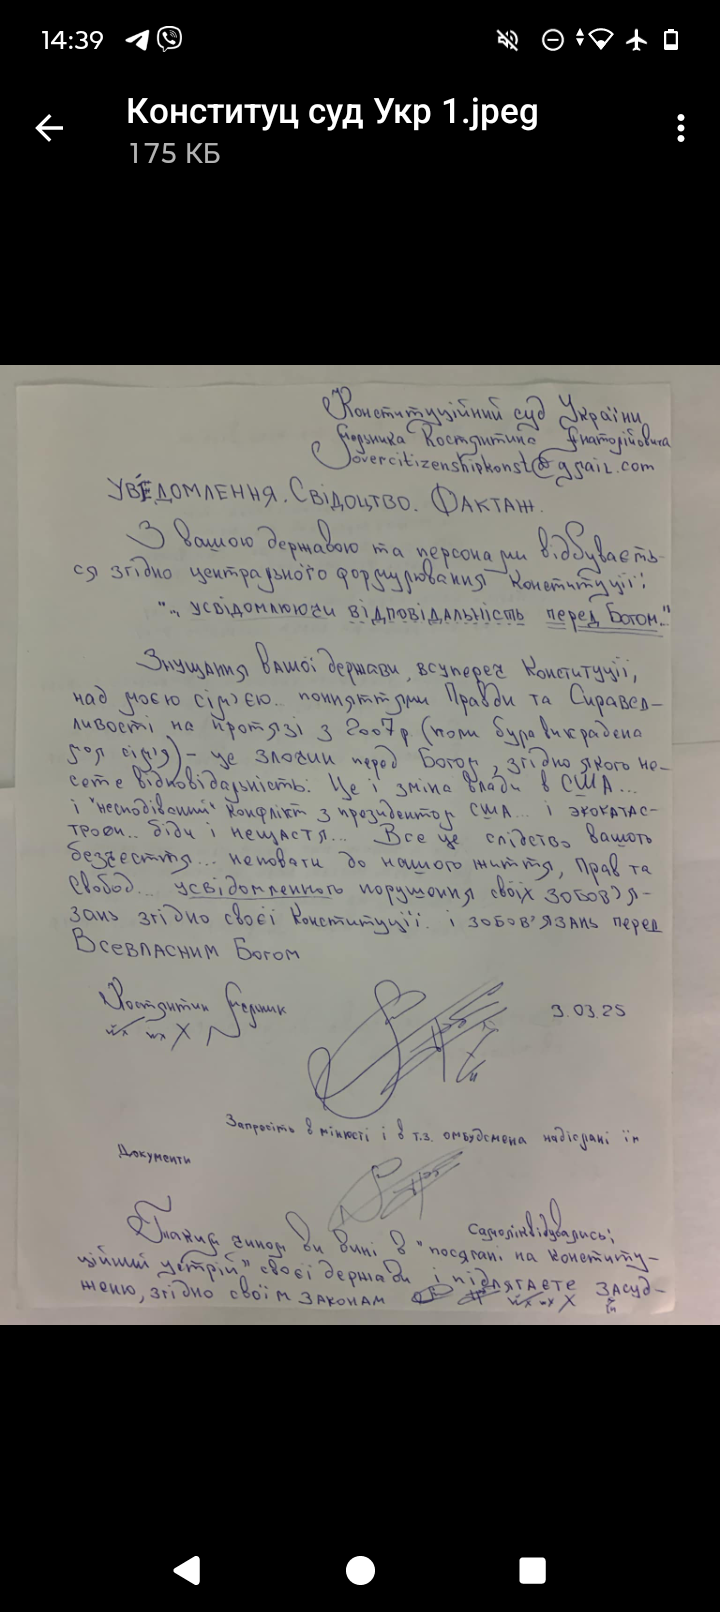 14:39
Конституц суд Укр 1.jpeg
175 КБ
Конституційний суд України
Мельника Костянтина Анатолійовича
overcitizenshipkonst@gmail.com
Уведомлення. Свідоцтво. Факта́ж.
З вашою державою та персонами відбуваєть-
ся згідно центрального формулювання Конституції:
"... усвідомлюючи відповідальність перед Богом..."
Знущання вашої держави, всуперечь Конституції,
над моєю сім'єю.. поняттями Правди та Справед-
ливості на протязі з 2007р (коли була викрадена
моя сім'я) - це злочин перед Богом, згідно якого не-
сете відповідальність: Це і зміна влади в США...
і "несподіваний" конфлікт з президентом США... і экокатас-
трофи.. біди і нещастя... Все це слідство вашого
безчестя... неповаги до нашого життя, Прав та
Свобод... усвідомленного порушення своїх зобов'я-
зань згідно своєї Конституції. і зобов'язань перед
Всевласним Богом
Костянтин Мельник
9.03.25
Запросіть в мінюсті і в т.з. омбудсмена надіслані їм
Документи
Самоліквідувались;
Таким чином ви вині в "посягані на конститу-
ційний устрій" своєї держави і підлягаєте засуд-
женю, згідно своїм законам